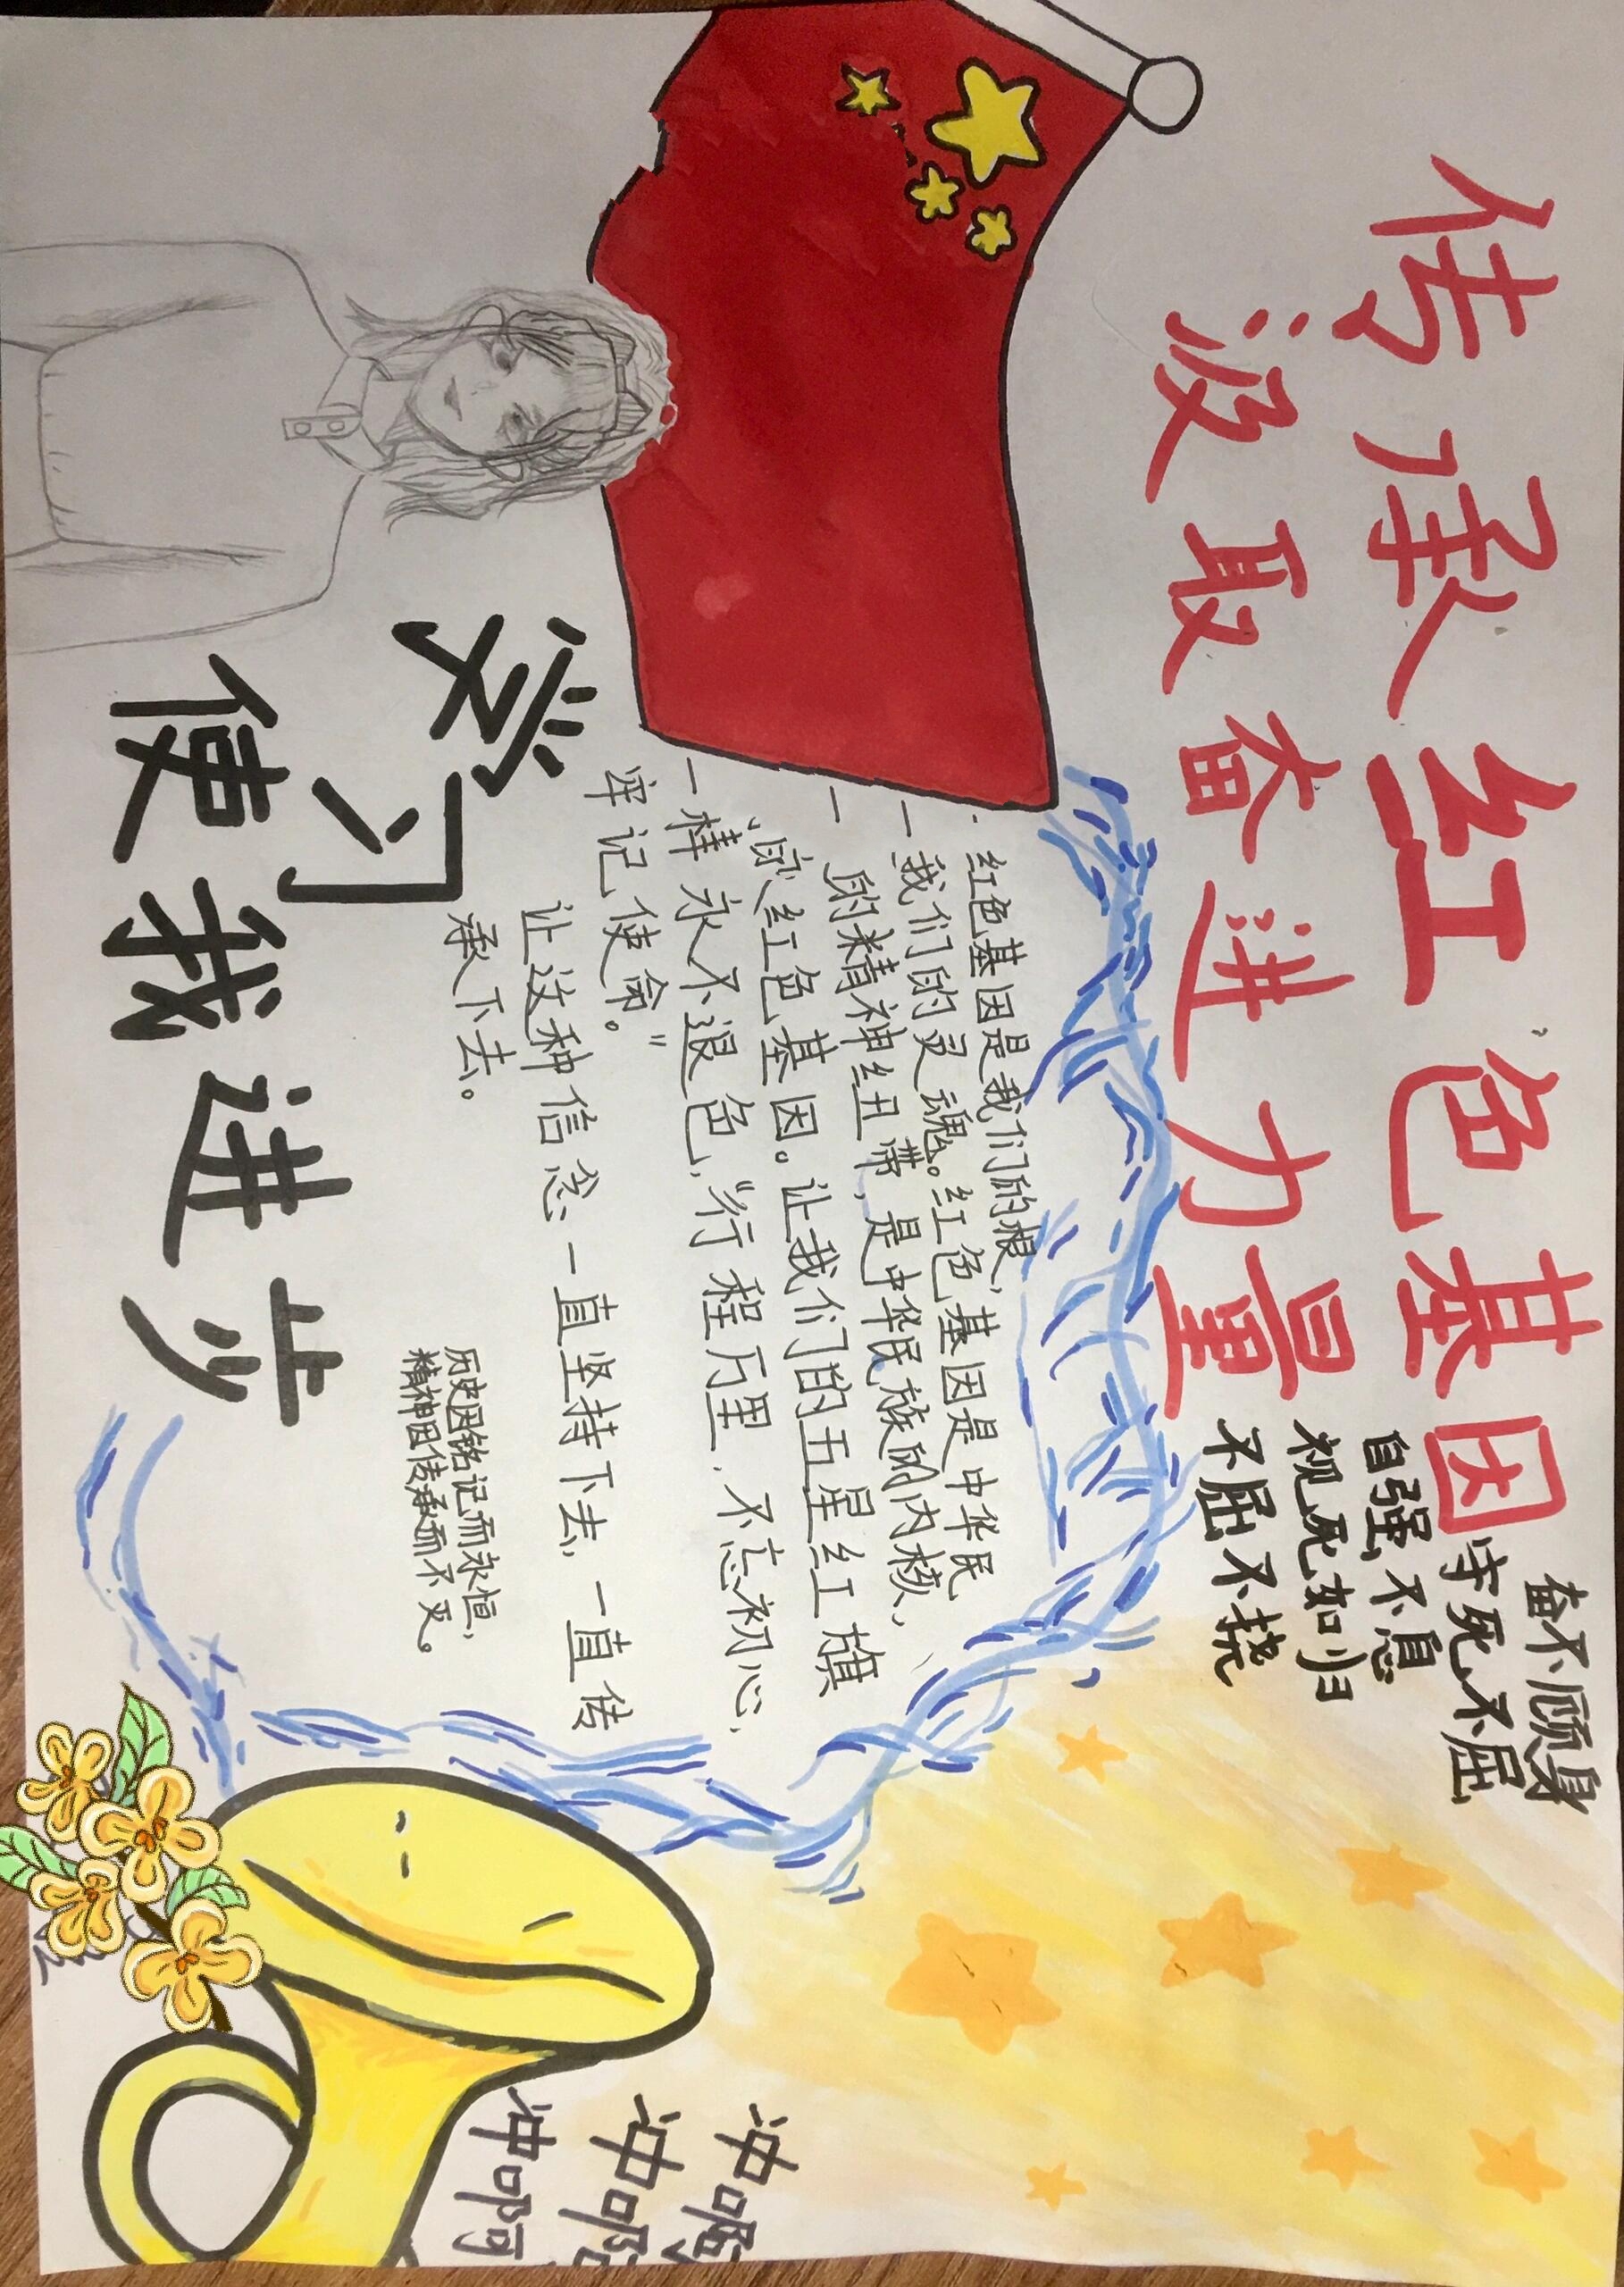 传承红色基因
汲取奋进力量
奋不顾身
宁死不屈
自强不息
视死如归
不屈不挠
红色基因是我们的根,
我们的灵魂。红色基因是中华民
的精神纽带,是中华民族的内核、
红色基因。让我们的五星红旗
一样永不退色,“行程万里,不忘初心,
牢记使命。”
让这种信念一直坚持下去,一直传
承下去。
历史因铭记而永恒,
精神因传承而不灭。
学习
使我进步
冲啊
冲啊
冲啊